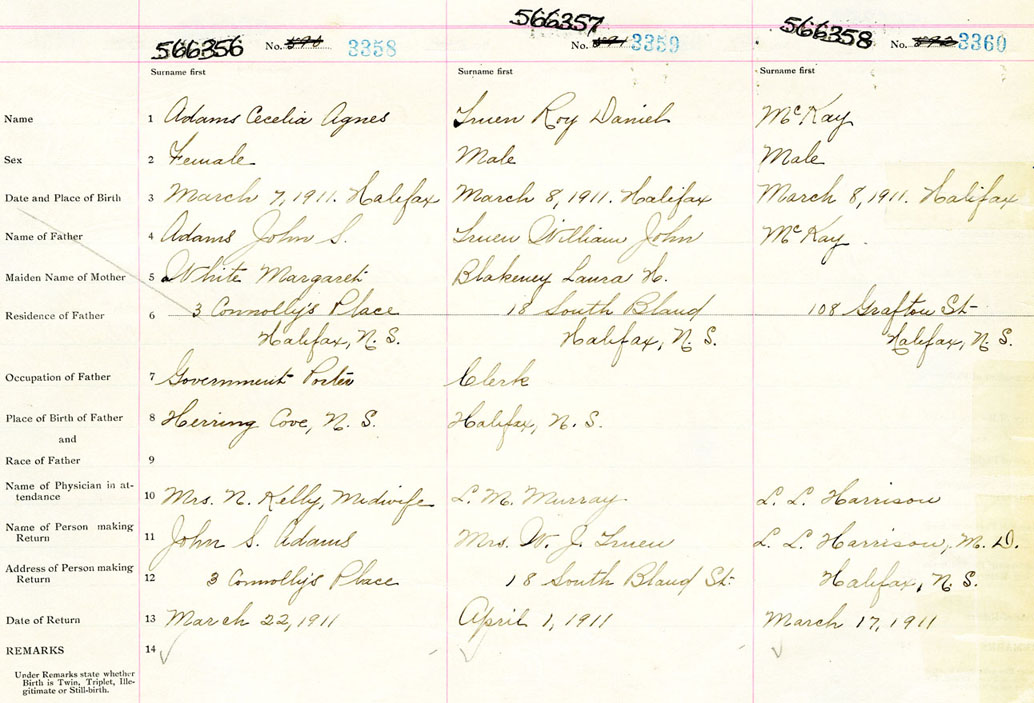 566357
566356 No. 3358
No. 3359
566358 No. 3360
Surname first Surname first Surname first
Name 1 Adams Cecelia Agnes Truen Roy Daniel McKay
Sex 2 Female Male Male
Date and Place of Birth 3 March 7, 1911. Halifax March 8, 1911. Halifax March 8, 1911. Halifax
Name of Father 4 Adams John S. Truen William John McKay
Maiden Name of Mother 5 White Margaret Blakeney Laura H.
Residence of Father 6 3 Connolly's Place 18 South Bland 108 Grafton St
Halifax, N. S. Halifax, N. S. Halifax, N. S.
Occupation of Father 7 Government Porter Clerk
Place of Birth of Father 8 Herring Cove, N. S. Halifax, N. S.
and
Race of Father 9
Name of Physician in at-
tendance 10 Mrs. N. Kelly, Midwife L. M. Murray L. L. Harrison
Name of Person making
Return 11 John S. Adams Mrs. W. J. Truen L. L. Harrison, M. D.
Address of Person making
Return 12 3 Connolly's Place 18 South Bland St. Halifax, N. S.
Date of Return 13 March 22, 1911 April 1, 1911 March 17, 1911
REMARKS 14
Under Remarks state whether
Birth is Twin, Triplet, Ille-
gitimate or Still-birth.